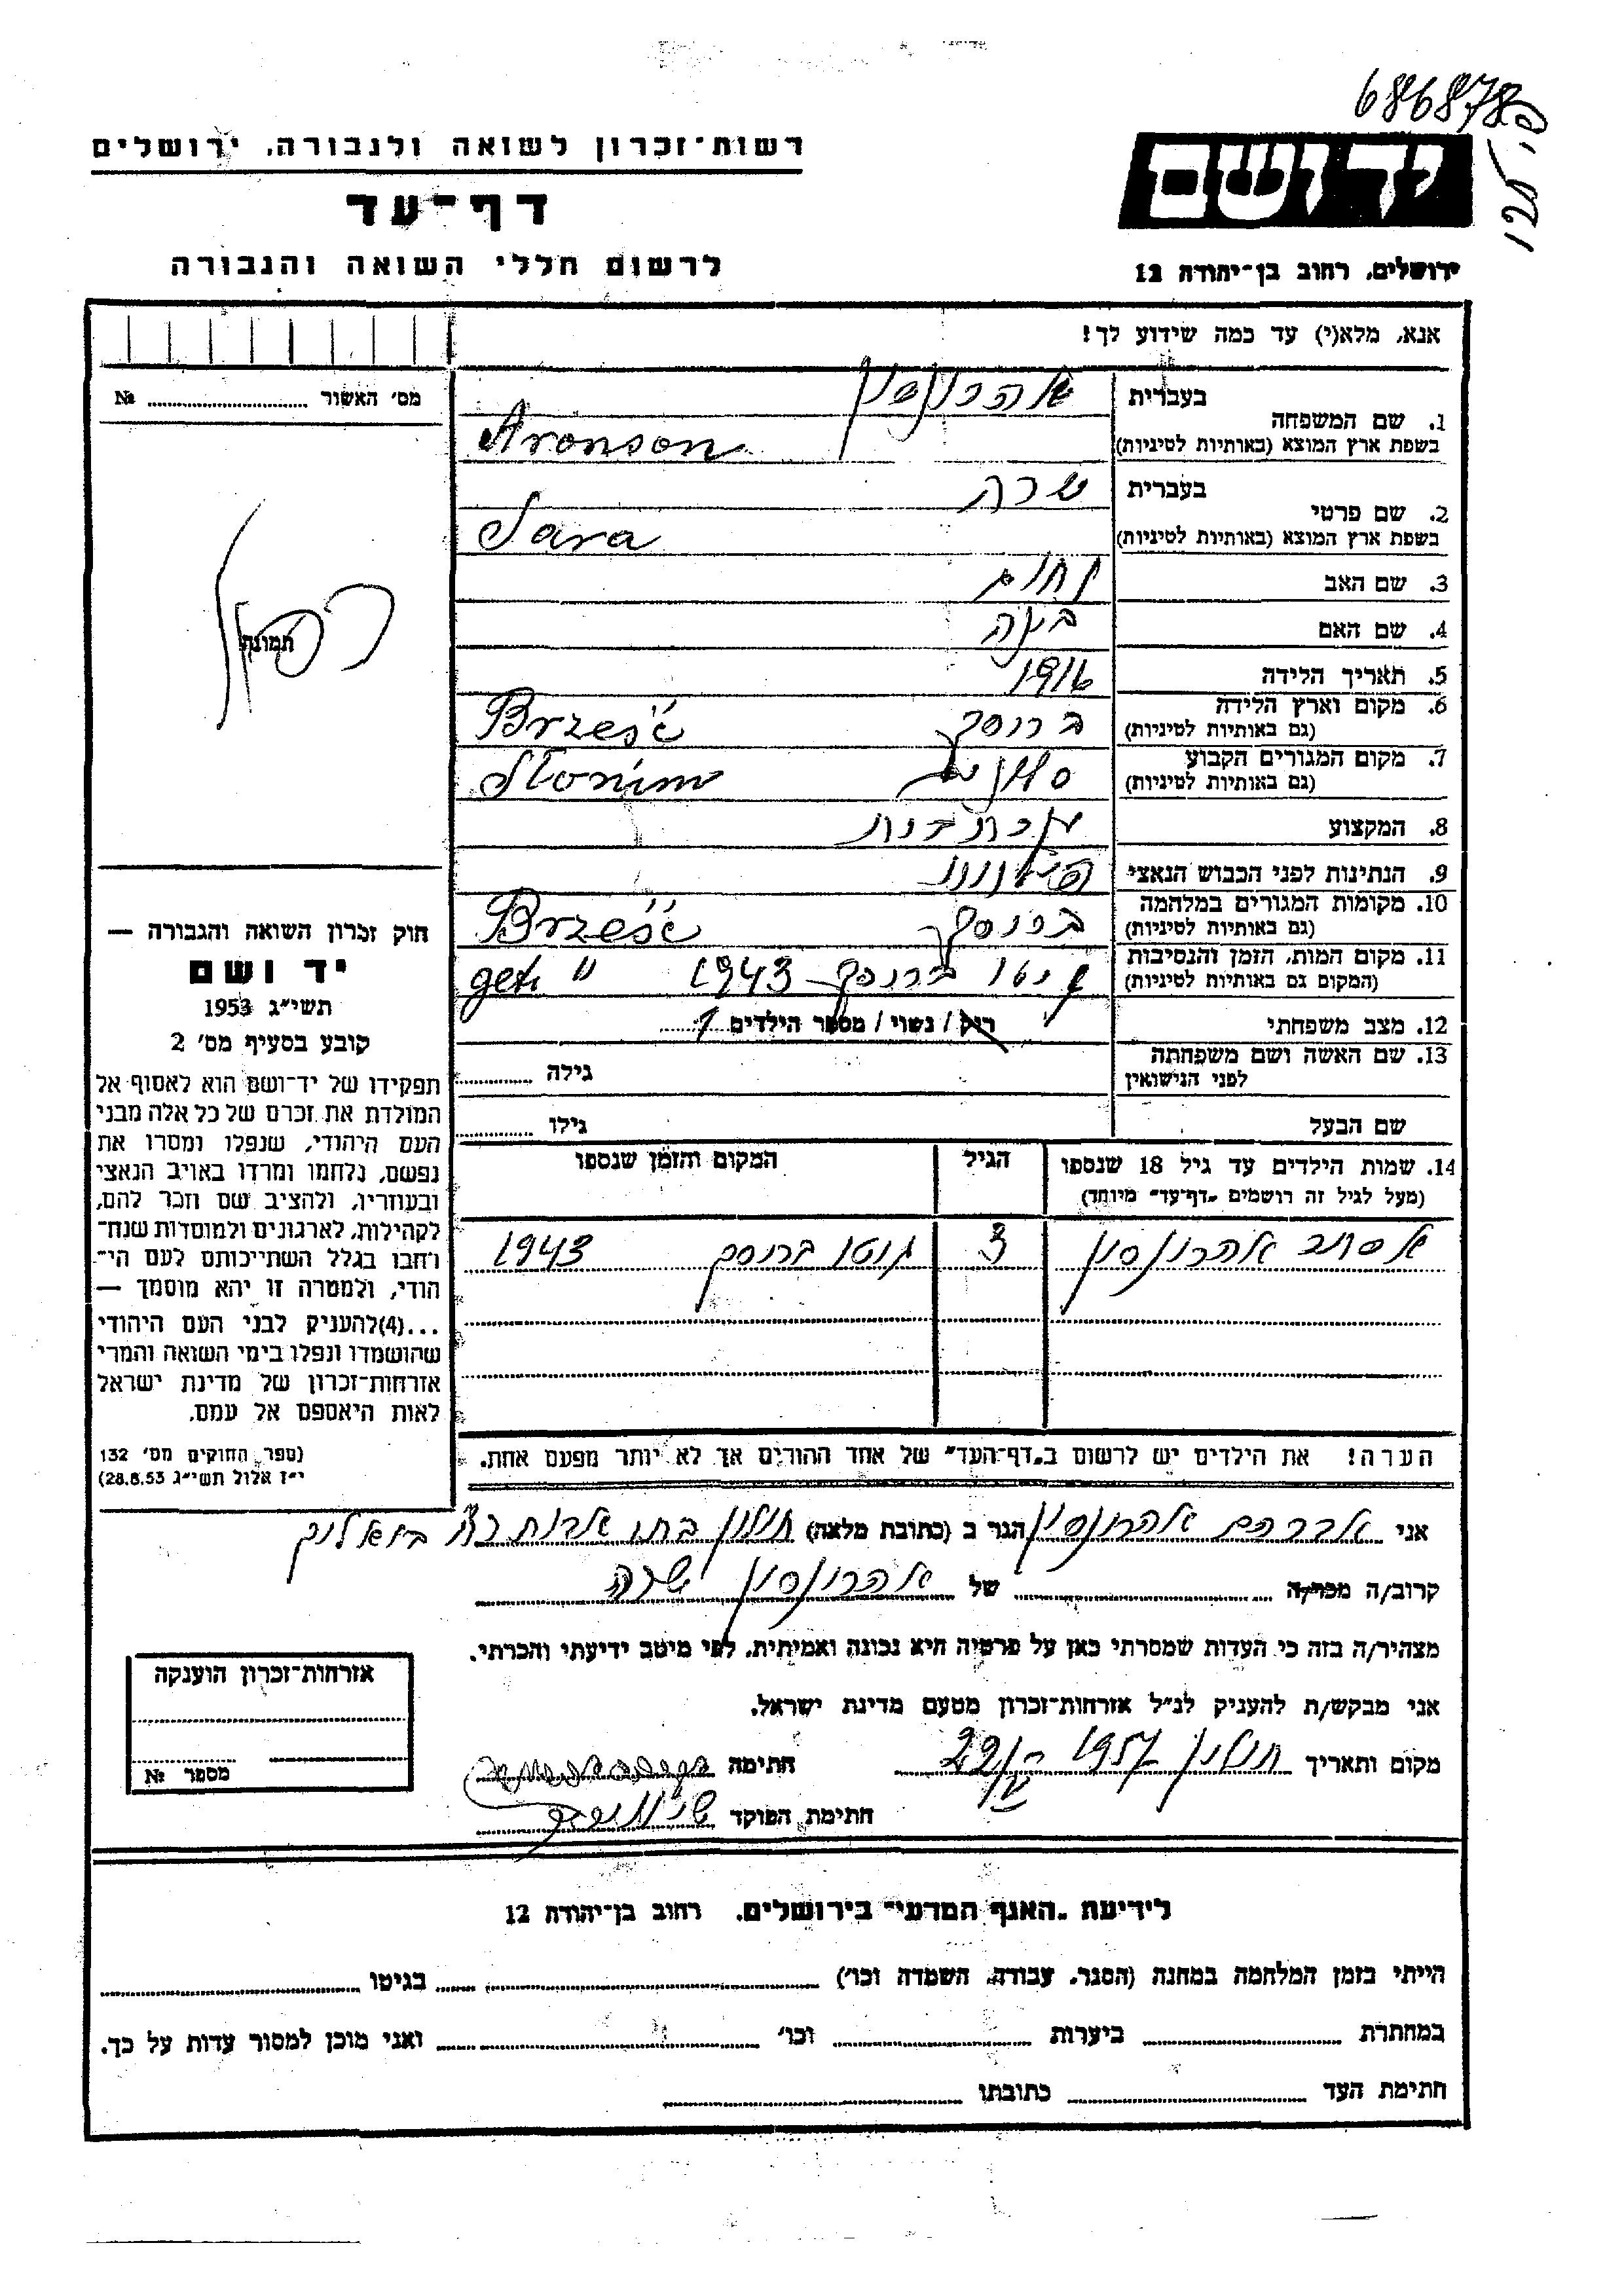 686878
רשות-זכרון לשואה ולגבורה, ירושלים
יד ושם
דף-עד
לרשום חללי השואה והגבורה
ירושלים, רחוב בן-יהודה 12
אנא, מלא(י) עד כמה שידוע לך!
מס' האשור № 
1. שם המשפחה
בעברית אהרונסון
בשפת ארץ המוצא (באותיות לטיניות) Aronson
2. שם פרטי
בעברית שרה
בשפת ארץ המוצא (באותיות לטיניות) Sara
3. שם האב נחום
4. שם האם
5. תאריך הלידה 1916
6. מקום וארץ הלידה
(גם באותיות לטיניות) Brześć
7. מקום המגורים הקבוע
(גם באותיות לטיניות) Słonim
8. המקצוע
9. הנתינות לפני הכבוש הנאצי
10. מקומות המגורים במלחמה
(גם באותיות לטיניות) Brześć
11. מקום המות, הזמן והנסיבות
(המקום גם באותיות לטיניות) 1943 get "
12. מצב משפחתי רוק / נשוי / מספר הילדים 1
13. שם האשה ושם משפחתה
לפני הנישואין
גילה
שם הבעל גילו
14. שמות הילדים עד גיל 18 שנספו
(מעל לגיל זה רושמים "דף-עד" מיוחד)
הגיל
המקום והזמן שנספו
אהרונסון 3 גטו 1943
הערה! את הילדים יש לרשום ב"דף-העד" של אחד ההורים אך לא יותר מפעם אחת.
תמונה
חוק זכרון השואה והגבורה —
יד ושם
תשי"ג 1953
קובע בסעיף מס' 2
תפקידו של יד-ושם הוא לאסוף אל
המולדת את זכרם של כל אלה מבני
העם היהודי, שנפלו ומסרו את
נפשם, נלחמו ומרדו באויב הנאצי
ובעוזריו, ולהציב שם וזכר להם,
לקהילות, לארגונים ולמוסדות שנח-
רחבו בגלל השתייכותם לעם הי-
הודי, ולמטרה זו יהא מוסמך —
...(4)להעניק לבני העם היהודי
שהושמדו ונפלו בימי השואה והמרי
אזרחות-זכרון של מדינת ישראל
לאות היאספם אל עמם.
(ספר החוקים מס' 132
י"ז אלול תשי"ג 28.8.53)
אני אברהם אהרונסון הגר ב (כתובת מלאה) חולון
קרוב/ה מכר/ה של אהרונסון שרה
מצהיר/ה בזה כי העדות שמסרתי כאן על פרטיה היא נכונה ואמיתית, לפי מיטב ידיעתי והכרתי.
אני מבקש/ת להעניק לנ"ל אזרחות-זכרון מטעם מדינת ישראל.
מקום ותאריך חולון 1957 חתימה
חתימת הפוקד
אזרחות-זכרון הוענקה
מספר №
לידיעת "האגף המדעי" בירושלים, רחוב בן-יהודה 12
הייתי בזמן המלחמה במחנה (הסגר, עבודה, השמדה וכו') בגיטו
במחתרת ביערות וכו' ואני מוכן למסור עדות על כך.
חתימת העד כתובתו